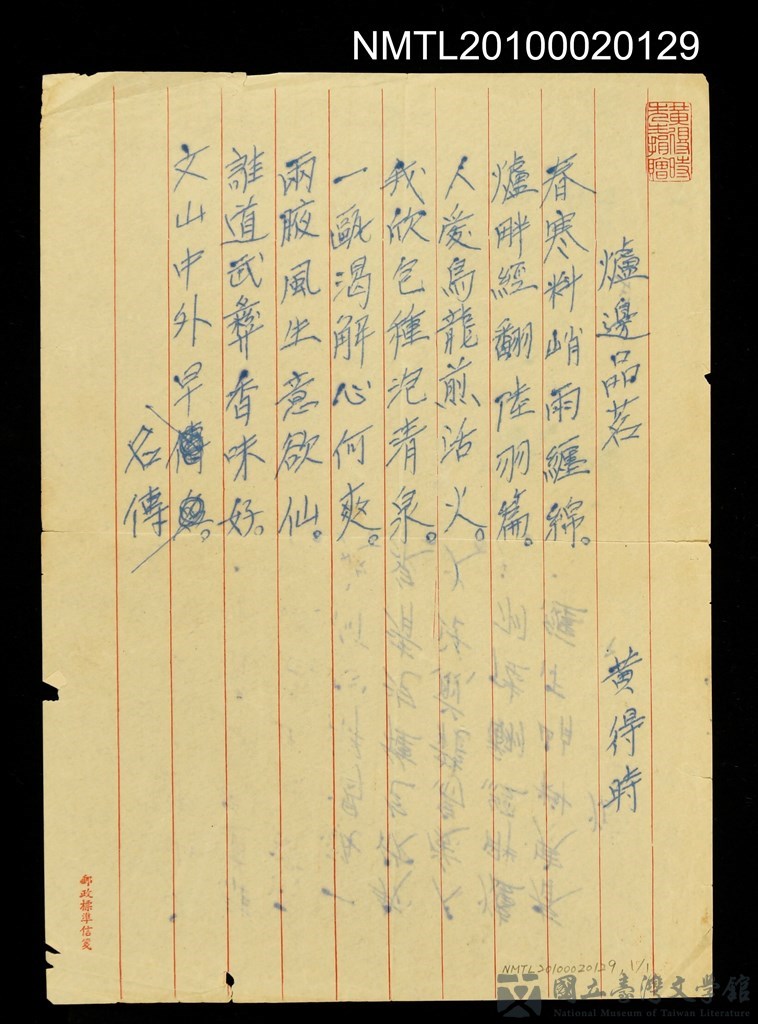 NMTL20100020129
黃得時先生捐贈
爐邊品茗 黃得時
春寒料峭雨纏綿。
爐畔經翻陸羽篇。
人愛烏龍煎活火。
我欣包種泡清泉。
一甌渴解心何爽。
兩腋風生意欲仙。
誰道武彝香味好。
文山中外早
名傳
郵政標準信箋
NMTL20100020129, 1/1
國立臺灣文學館
National Museum of Taiwan Literature